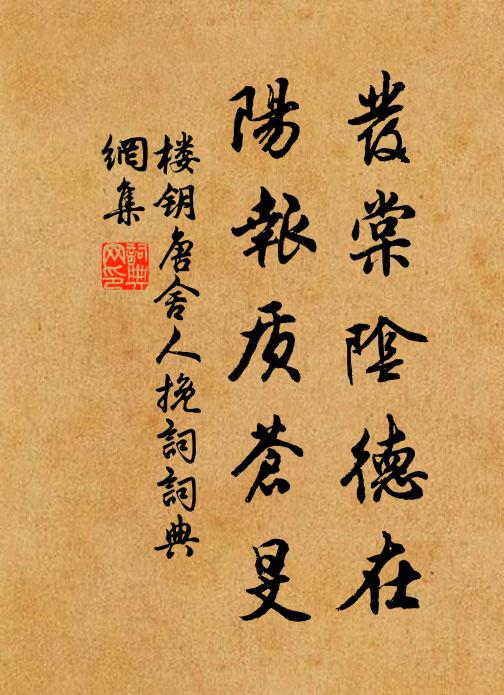 發棠陰德在
陽報質蒼旻
楼钥唐舍人挽詞詞典
網集
詞典
网印